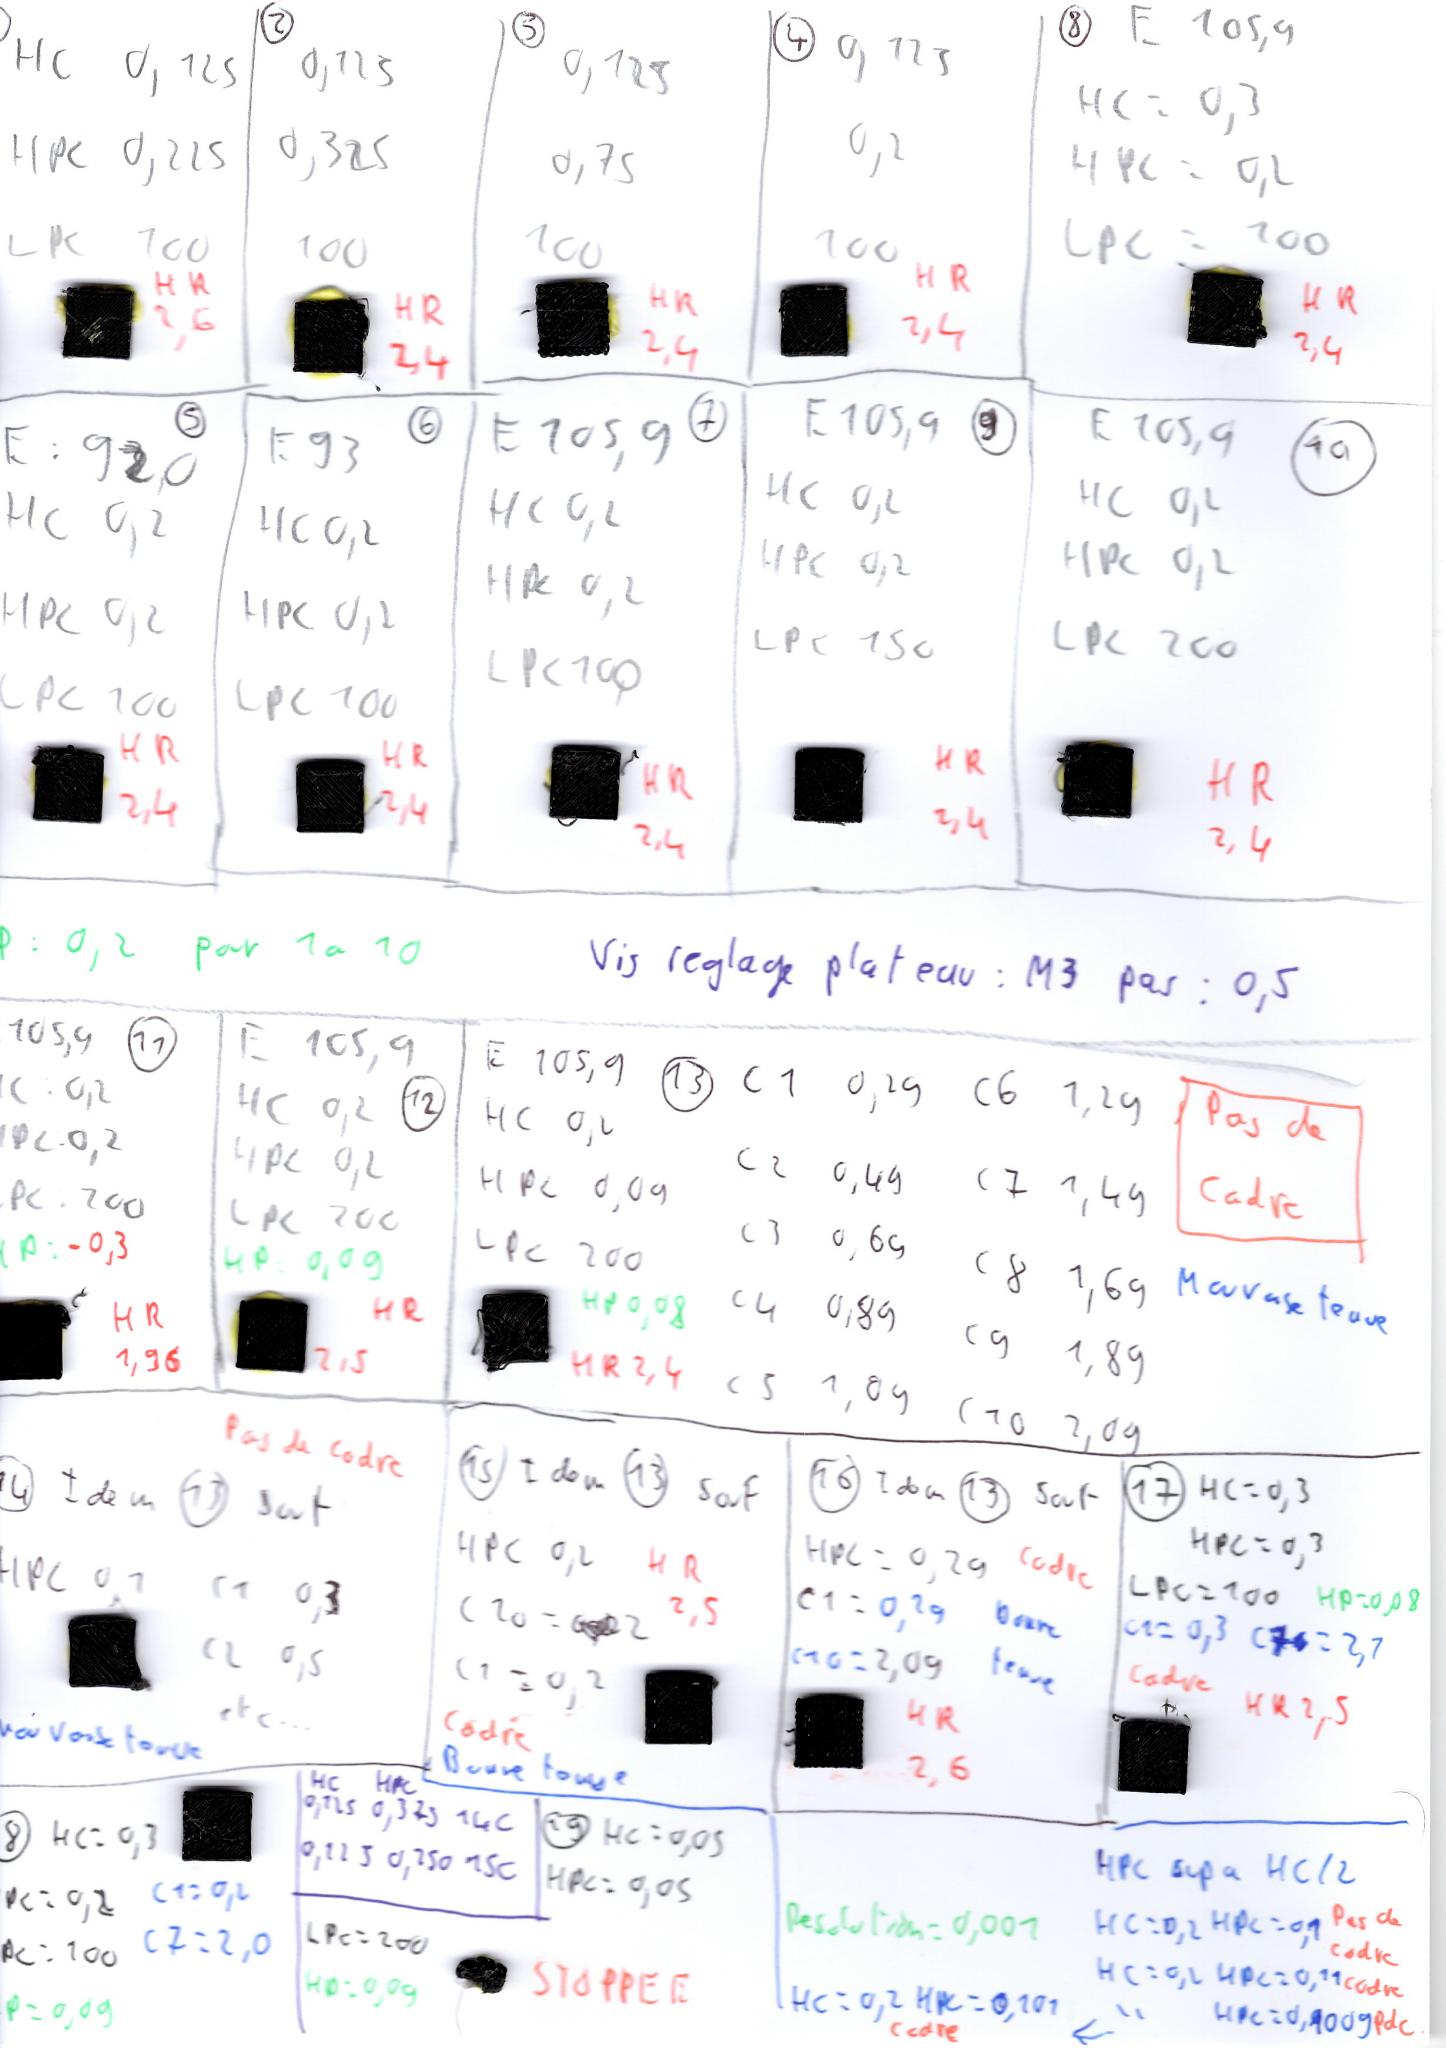 HC 0,125
HPC 0,225
LPC 100
HR
2,6
②
0,125
0,325
100
HR
2,4
③
0,125
0,75
100
HR
2,4
④
0,125
0,2
100
HR
2,4
⑧ E 105,9
HC = 0,3
HPC = 0,2
LPC = 100
HR
2,4
⑤
E : 92,0
HC 0,2
HPC 0,2
LPC 100
HR
2,4
⑥
E 93
HC 0,2
HPC 0,2
LPC 100
HR
2,4
E 105,9 ⑦
HC 0,2
HPC 0,2
LPC 100
HR
2,4
E 105,9 ⑨
HC 0,2
HPC 0,2
LPC 150
HR
2,4
E 105,9
HC 0,2
HPC 0,2
LPC 200
HR
2,4
P : 0,2 par 1a 10
Vis reglage plateau : M3 pas : 0,5
105,9 ⑪
C : 0,2
PC : 0,2
PC : 200
HP : -0,3
HR
1,96
E 105,9
HC 0,2 ⑫
HPC 0,2
LPC 200
HP : 0,09
HR
2,5
E 105,9 ⑬
HC 0,2
HPC 0,09
LPC 200
HP 0,08
HR 2,4
C1 0,29
C2 0,49
C3 0,69
C4 0,89
C5 1,09
C6 1,29
C7 1,49
C8 1,69
C9 1,89
C10 2,09
Pas de
Cadre
Mauvaise tenue
Pas de cadre
14 Idem ⑬ sauf
HPC 0,1
C1 0,3
C2 0,5
etc...
tenue
⑮ Idem ⑬ sauf
HPC 0,2
HR
2,5
C1 = 0,2
Cadre
Bonne tenue
⑯ Idem ⑬ sauf
HPC = 0,29 Cadre
C1 = 0,29 bonne
C10 = 2,09 tenue
HR
2,6
⑰ HC = 0,3
HPC = 0,3
LPC = 100 HP = 0,08
C1 = 0,3 = 2,1
Cadre HR 2,5
8 HC = 0,3
PC = 0,2 C1 = 0,2
PC = 100 C7 = 2,0
P = 0,09
HC HPC
0,125 0,375 14C
0,125 0,250 15C
⑲ HC = 0,05
HPC = 0,05
LPC = 200
HP = 0,09
STOPPEE
Resolution = 0,001
HC = 0,2 HPC = 0,101
cadre
HPC sup a HC/2
HC = 0,2 HPC = 0,1 Pas de
cadre
HC = 0,2 HPC = 0,11 cadre
" HPC = 0,1009 Pdc.